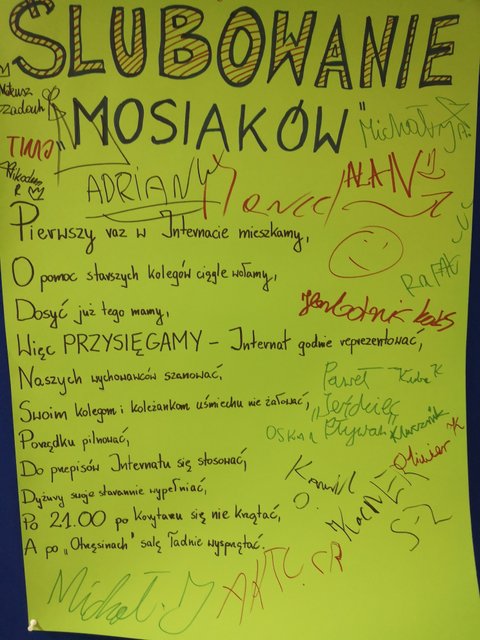 ŚLUBOWANIE
"MOSIAKÓW"
Michał
TIMU
ADRIAN W
ALAN
Pierwszy raz w Internacie mieszkamy,
O pomoc starszych kolegów ciągle wołamy,
RAFAŁ
Dosyć już tego mamy,
Więc PRZYSIĘGAMY – Internat godnie reprezentować,
Naszych wychowawców szanować,
Paweł Kuba K
Swoim kolegom i koleżankom uśmiechu nie żałować,
"Jeździec
Pływak"
OSKAR
Porządku pilnować,
Oliwier K
Do przepisów Internatu się stosować,
Kamil
Dyżury swoje starannie wypełniać,
KACPER
Po 21.00 po korytarzu się nie krzątać,
A po „Otrzęsinach" salę ładnie wysprzątać.
Michał. J